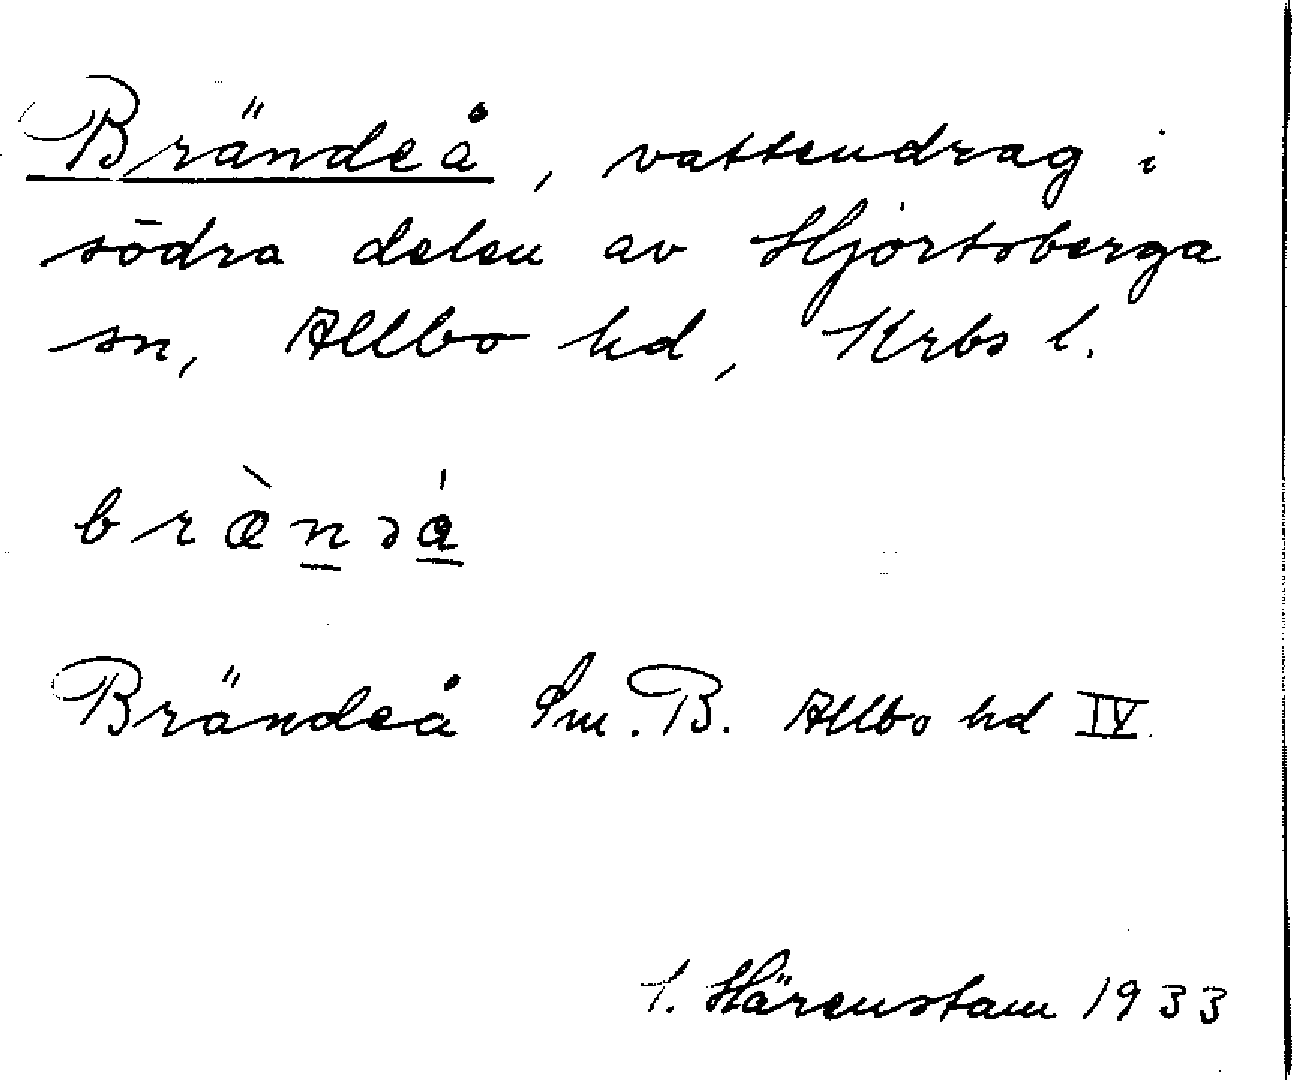 Brändeå, vattendrag i
södra delen av Hjortsberga
sn, Allbo hd, Krbs l.
bræ̀nəå
Brändeå Sm. B. Allbo hd IV.
I. Härenstam 1933